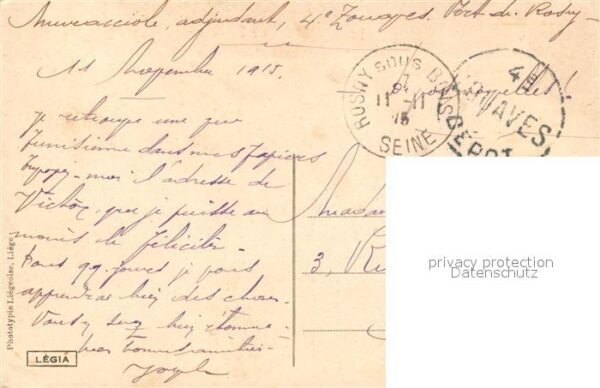 adjudant, 4e Zouaves, Fort de Rosny
11 Novembre 1915.
je retrouve une vue
Tunisienne dans mes papiers
Envoyez-moi l'adresse de
Victor, que je puisse au
moins le féliciter.
Dans qq. jours je vous
apprendrai bien des choses
Vous serez bien
Joseph
ROSNY SOUS BOIS
11-11
15
SEINE
4e
ZOUAVES
DÉPOT
Madam
3, Ru
privacy protection
Datenschutz
Phototypie Liégeoise, Liége
LÉGIA